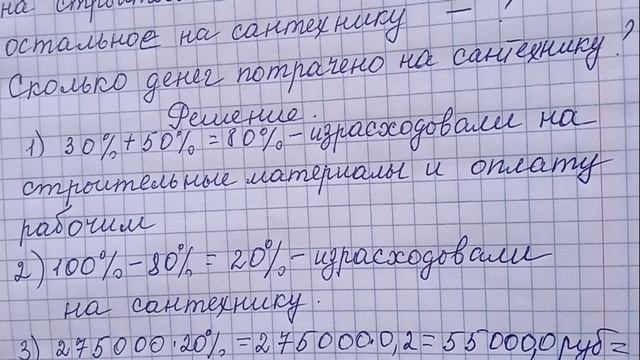 на строит
остальное на сантехнику — ?
Сколько денег потрачено на сантехнику?
Решение.
1) 30% + 50% = 80% - израсходовали на
строительные материалы и оплату
рабочим
2) 100% - 80% = 20% - израсходовали
на сантехнику.
3) 275000·20% = 275000·0,2 = 55000,0 руб =